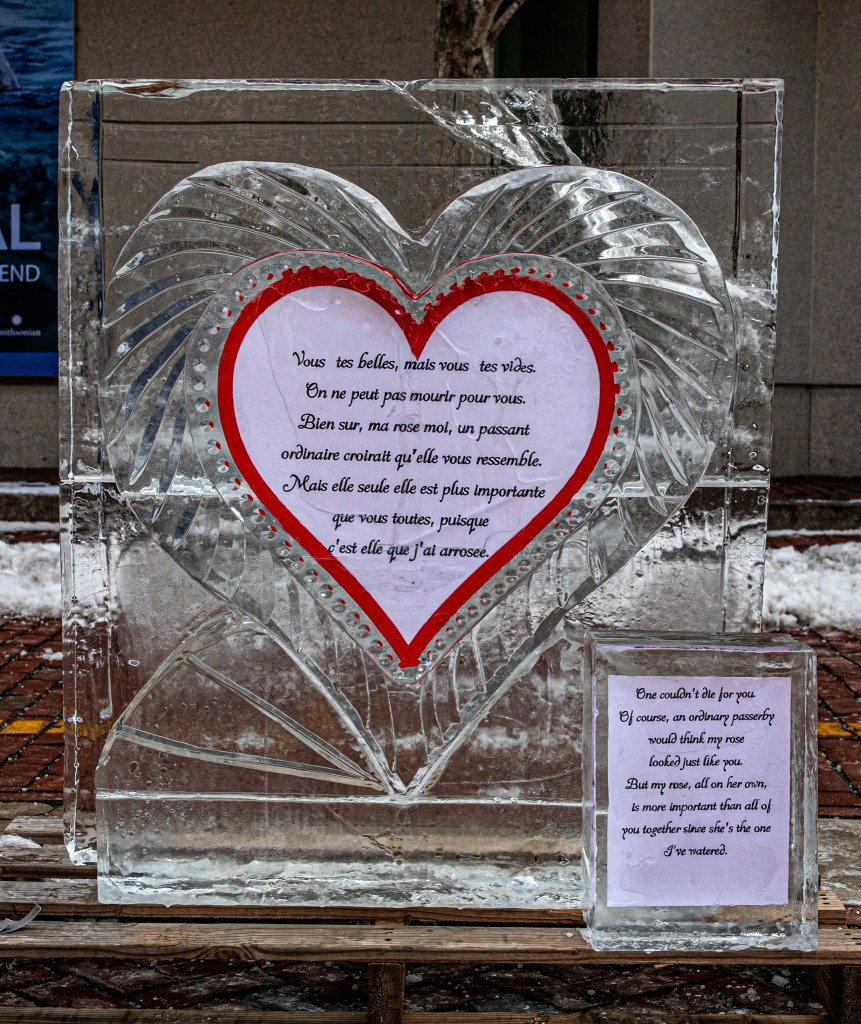 AL
END
Smithsonian
Vous tes belles, mais vous tes vides.
On ne peut pas mourir pour vous.
Bien sur, ma rose moi, un passant
ordinaire croirait qu'elle vous ressemble.
Mais elle seule elle est plus importante
que vous toutes, puisque
c'est elle que j'ai arrosee.
One couldn't die for you.
Of course, an ordinary passerby
would think my rose
looked just like you.
But my rose, all on her own,
is more important than all of
you together since she's the one
I've watered.